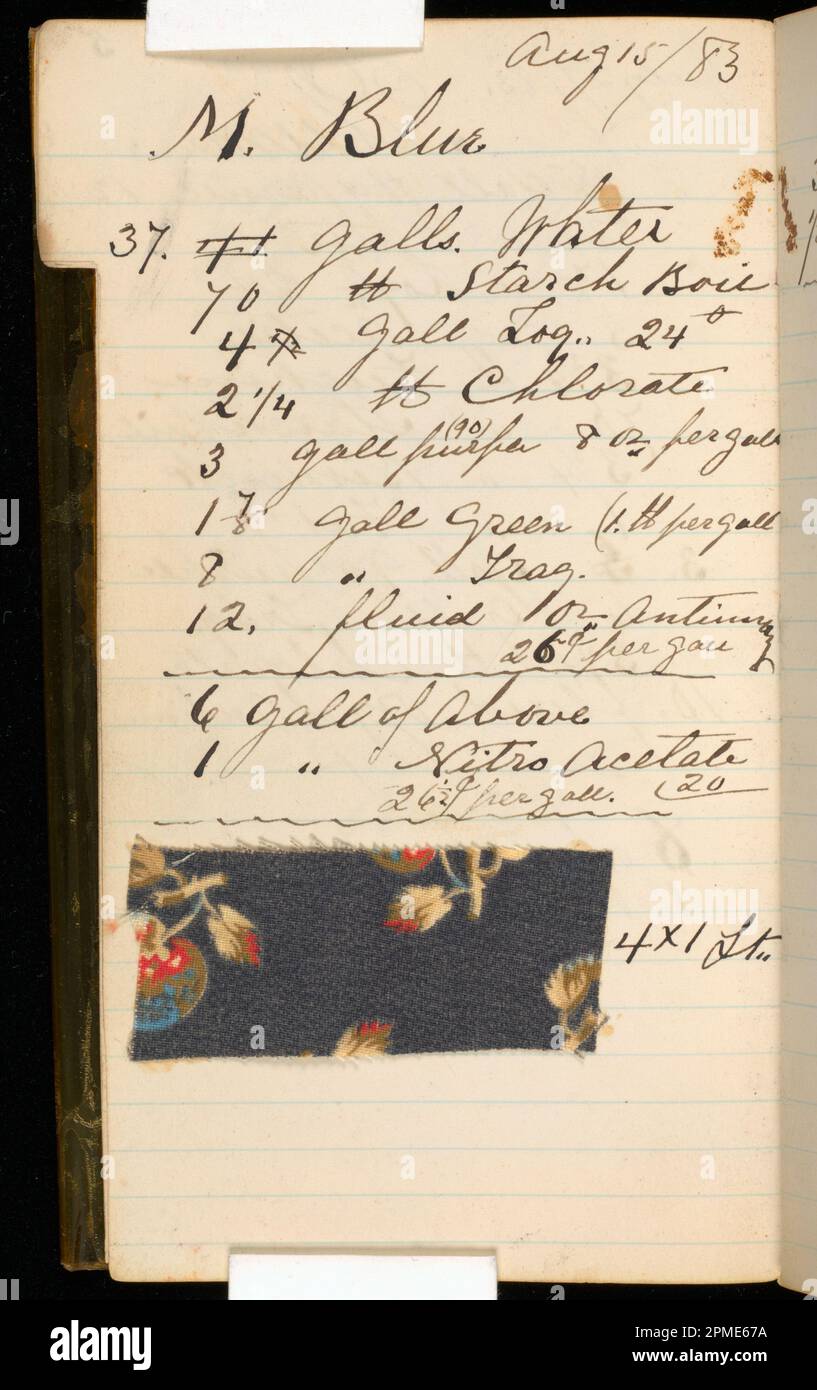 Aug 15/83
M. Blue
37. galls. Water
70 lb Starch Boil
4 gall Log., 24°
2 1/4 lb Chlorate
(90)
3 gall purpa 8 oz per gall
1 7/8 gall Green (1. lb per gall
8 " Trag.
12. fluid oz Antimony
26 per gall
6 gall of Above
1 " Nitro Acetate
26 1/2 per gall. (20
4 x 1 St..
alamy
Image ID: 2PME67A
www.alamy.com